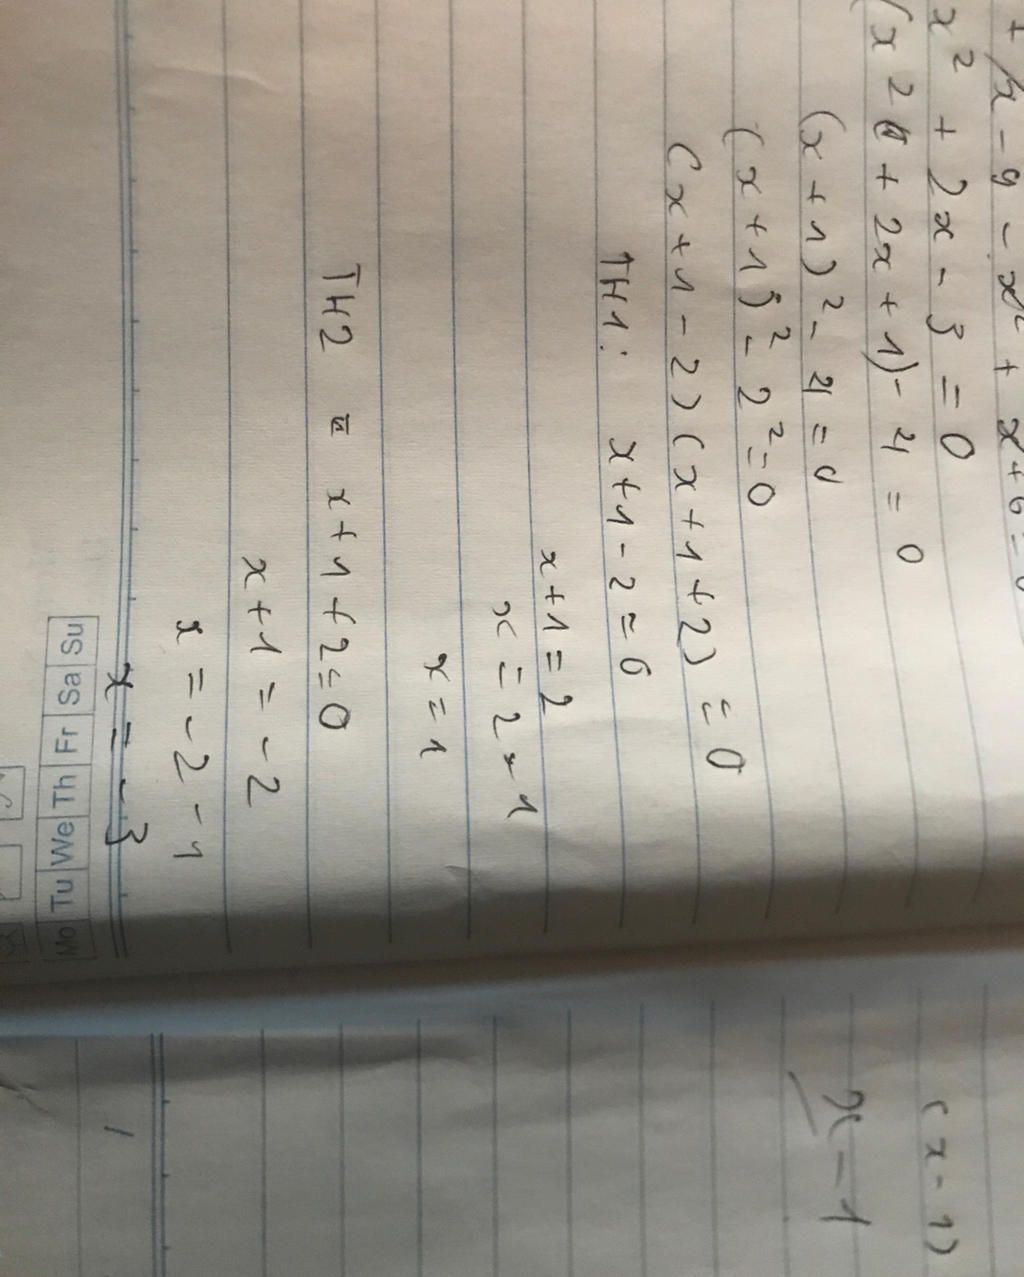 x - 9 - x² + x + 6 = 0
x² + 2x - 3 = 0
(x² + 2x + 1) - 4 = 0
(x + 1)² - 4 = 0
(x + 1)² - 2² = 0
(x + 1 - 2) (x + 1 + 2) = 0
TH1: x + 1 - 2 = 0
x + 1 = 2
x = 2 - 1
x = 1
TH2 x + 1 + 2 = 0
x + 1 = -2
x = -2 - 1
x = -3
Mo Tu We Th Fr Sa Su
(x - 1)
x - 1